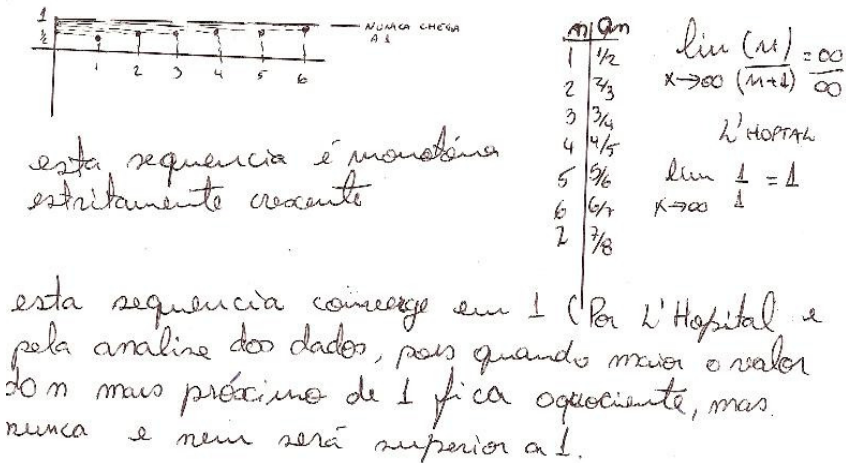 1
½
1 2 3 4 5 6
NUNCA CHEGA
A 1
n an
1 1/2
2 2/3
3 3/4
4 4/5
5 5/6
6 6/7
2 7/8
lim (n) = ∞
x→∞ (n+1) ∞
L'HOPTAL
lim 1 = 1
x→∞ 1
esta sequencia é monotóna
estritamente crescente
esta sequencia converge em 1 (Por L'Hopital e
pela analise dos dados, pois quando maior o valor
do n mais próximo de 1 fica o quociente, mas
nunca e nem será superior a 1.